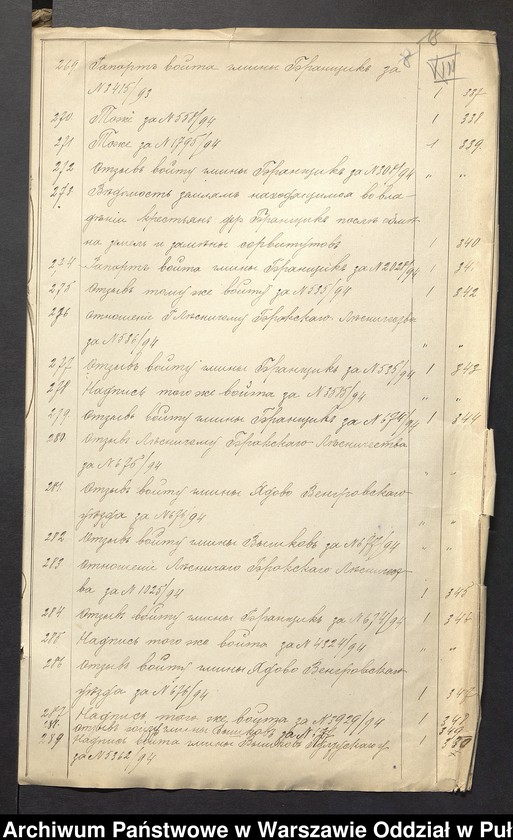 18
8 XIII
269 Рапортъ войта гмины Бранщикъ за
№ 3415/93 1 337
270 Тоже за № 558/94 1 338
271 Тоже за № 1795/94 1 339.
272 Отзывъ войту гмины Бранщикъ за № 308/94 " "
273 Вѣдомость землямъ находящимся во вла-
дѣніи крестьянъ дер. Бранщикъ послѣ обмѣ-
на земель и замѣны сервитутовъ 1 340
274 Рапортъ войта гмины Бранщикъ за № 2028/94 1 34.
275 Отзывъ тому же войту за № 535/94 342
276 Отношеніе Лѣсничему Боровскаго Лѣсничества
за № 536/94 " "
277 Отзывъ войту гмины Бранщикъ за № 535/94 1 343
278 Надпись того же войта за № 3575/94 " "
279 Отзывъ войту гмины Бранщикъ за № 674/94 1 344
280 Отзывъ Лѣсничему Боровскаго Лѣсничества
за № 675/94 " "
281 Отзывъ войту гмины Ядово Венгровскаго
уѣзда за № 676/94 " "
282 Отзывъ войту гмины Вышковъ за № 677/94 " "
283 Отношеніе Лѣсничаго Боровскаго Лѣсничест-
ва за № 1025/94 1 345
284 Отзывъ войту гмины Бранщикъ за № 674/94 1 346
285 Надпись того же войта за № 4324/94 " "
286 Отзывъ войту гмины Ядово Венгровскаго
уѣзда за № 676/94 1 347
287 Надпись того же войта за № 3929/94 1 348
288 Отзывъ войту гмины Вышковъ за № 349
289 Надпись войта гмины Вышковъ Пултускаго у. 1 350
за № 5362/94
Archiwum Państwowe w Warszawie Oddział w Puł